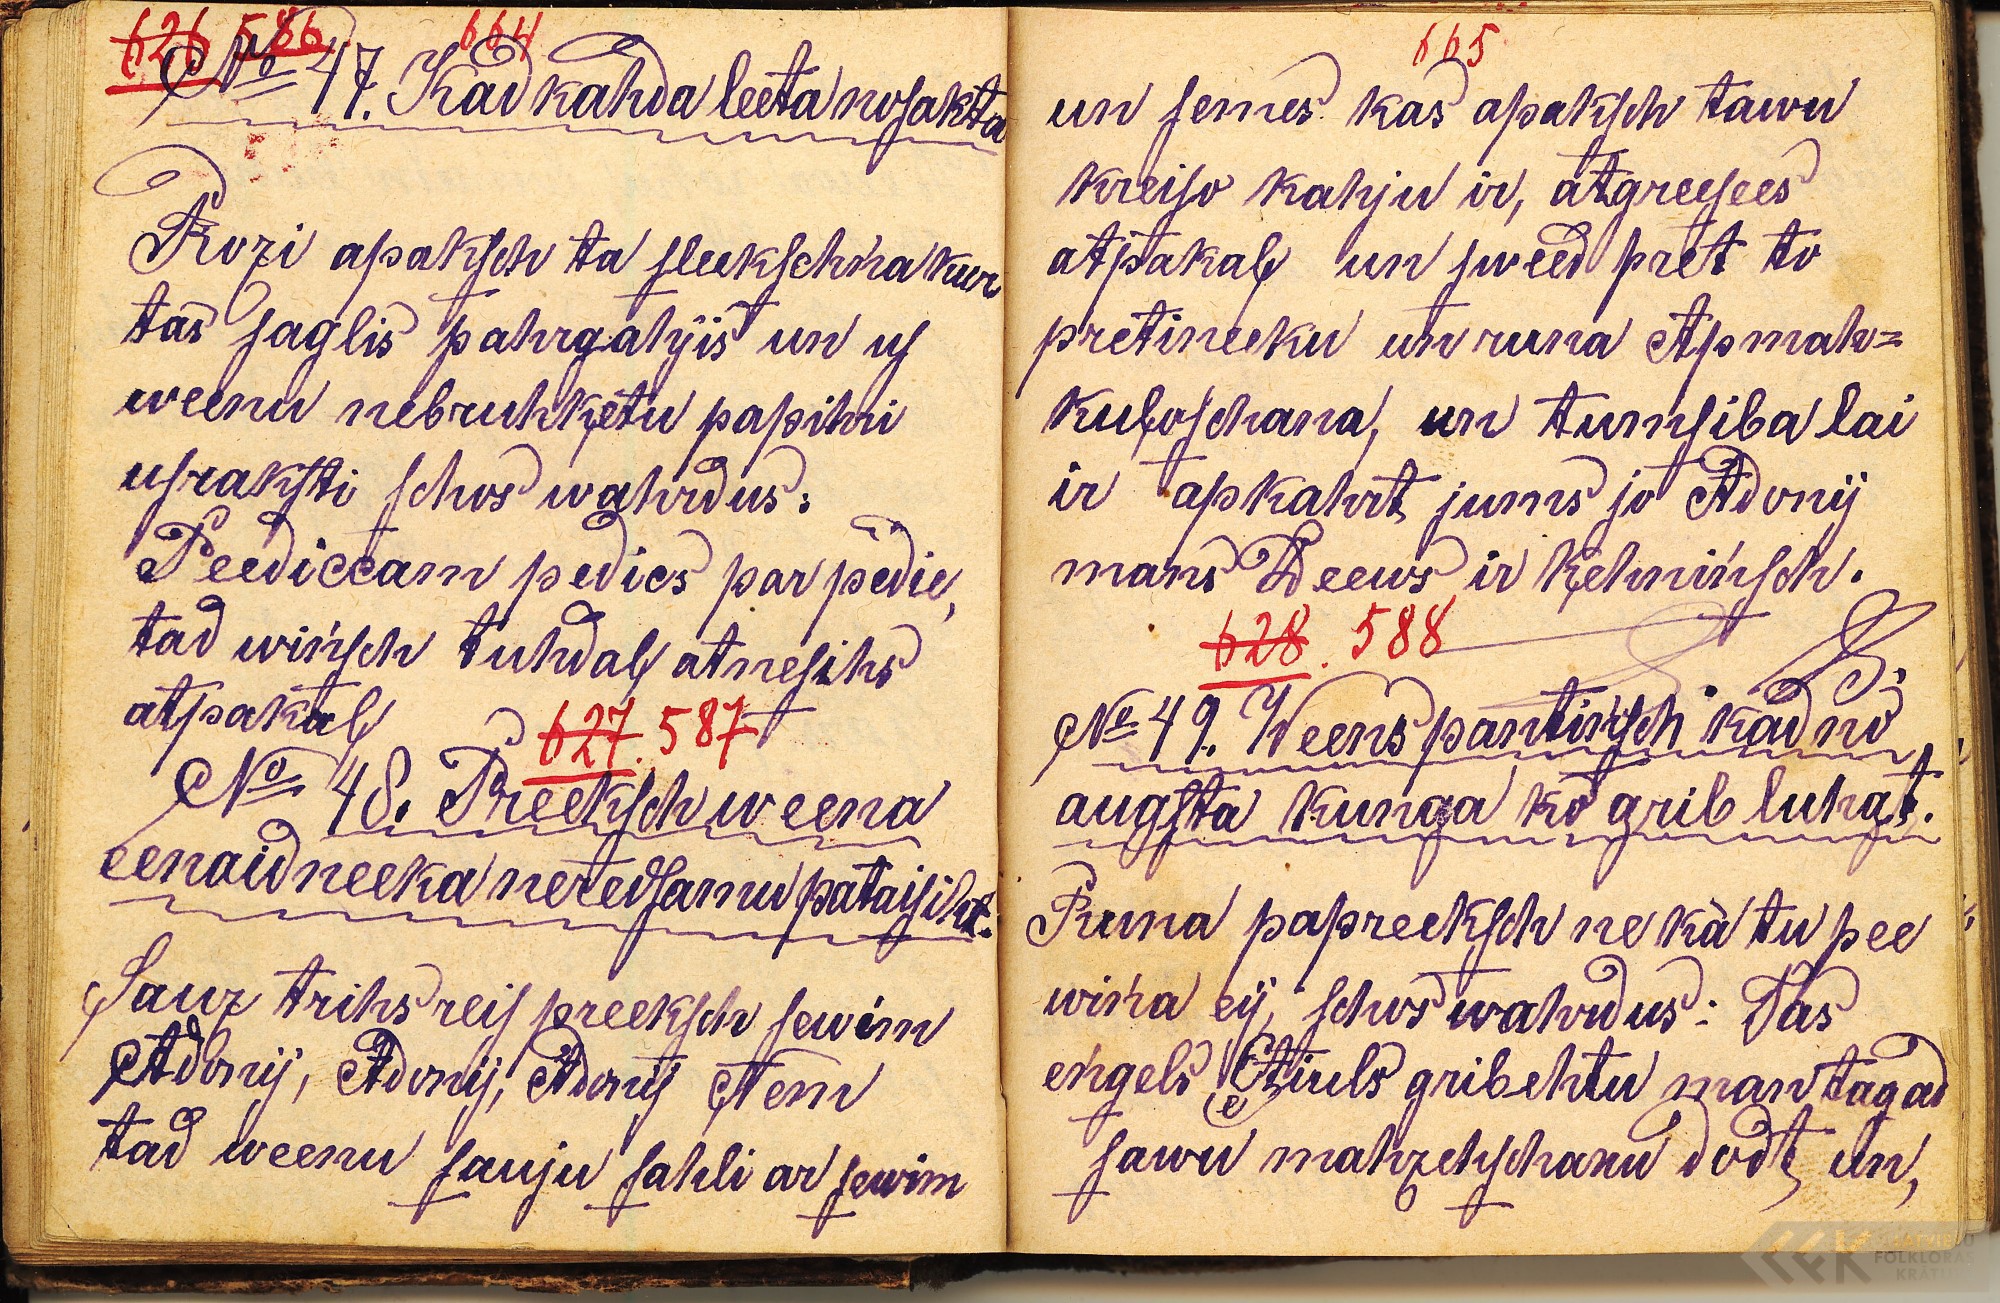 626 586 664
№ 47. Kad kahda leeta nosakta
Kozi apaksch ta sleekschna kur
tas saglis pahrgahjis un us
weenu nebruhketu papihri
usraksti schos wahrdus:
Peediccam pedics par pedie,
tad winsch tuhdaļ atnesihs
atpakaļ
627. 587
№ 48. Preeksch weena
eenaidneeka neredsamu pataisiht.
Sauz trihs reis preeksch sewim
Adonij, Adonij, Adonij Nem
tad weenu sauju sahli ar sewim
665
un semes kas apaksch tawu
kreiso kahju ir, atgreesees
atpakaļ un sweed pret to
pretineeku un runa Apmah=
kuļoschana, un tumsiba lai
ir apkahrt jums jo Adonij
mans Deews ir kehninsch.
628. 588
№ 49. Weens pantinsch kad no
augsta kunga ko grib luhgt.
Runa papreeksch ne kà tu pee
wiņa eij, schos wahrdus: Tas
engels gribehtu man tagad
sawu mahzehschanu dodt, un,
LATVIEŠU
FOLKLORAS
KRĀTUVE